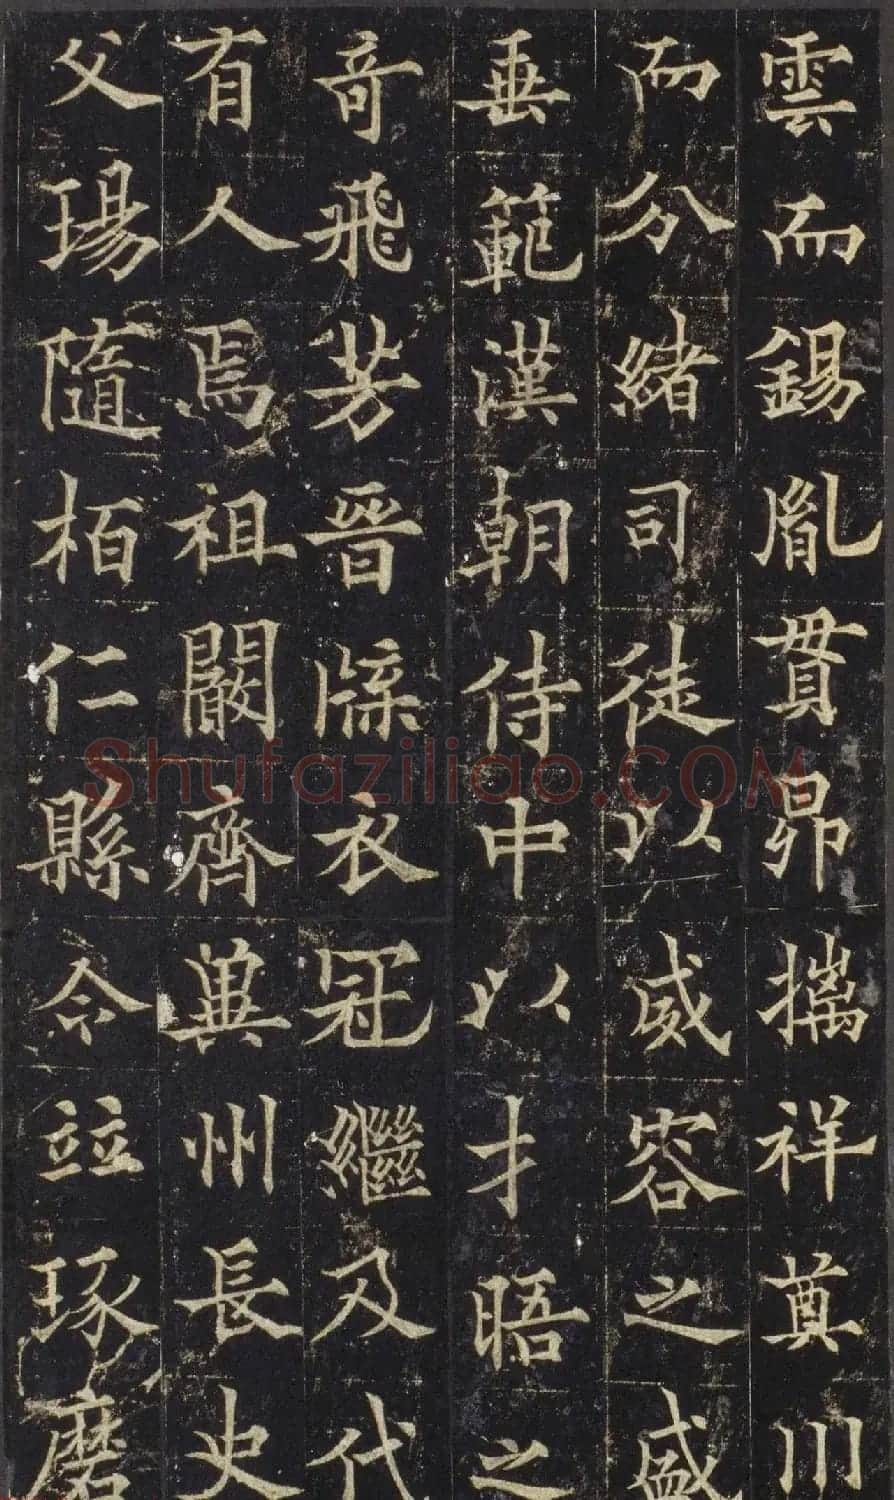 雲而錫胤貫昴摛祥奠川
而分緒司徒以威容之盛
垂範漢朝侍中以才晤之
奇飛芳晉牒衣冠繼及代
有人焉祖儼齊兼州長史
父瑒隨栢仁縣令竝琢磨
Shufaziliao.COM